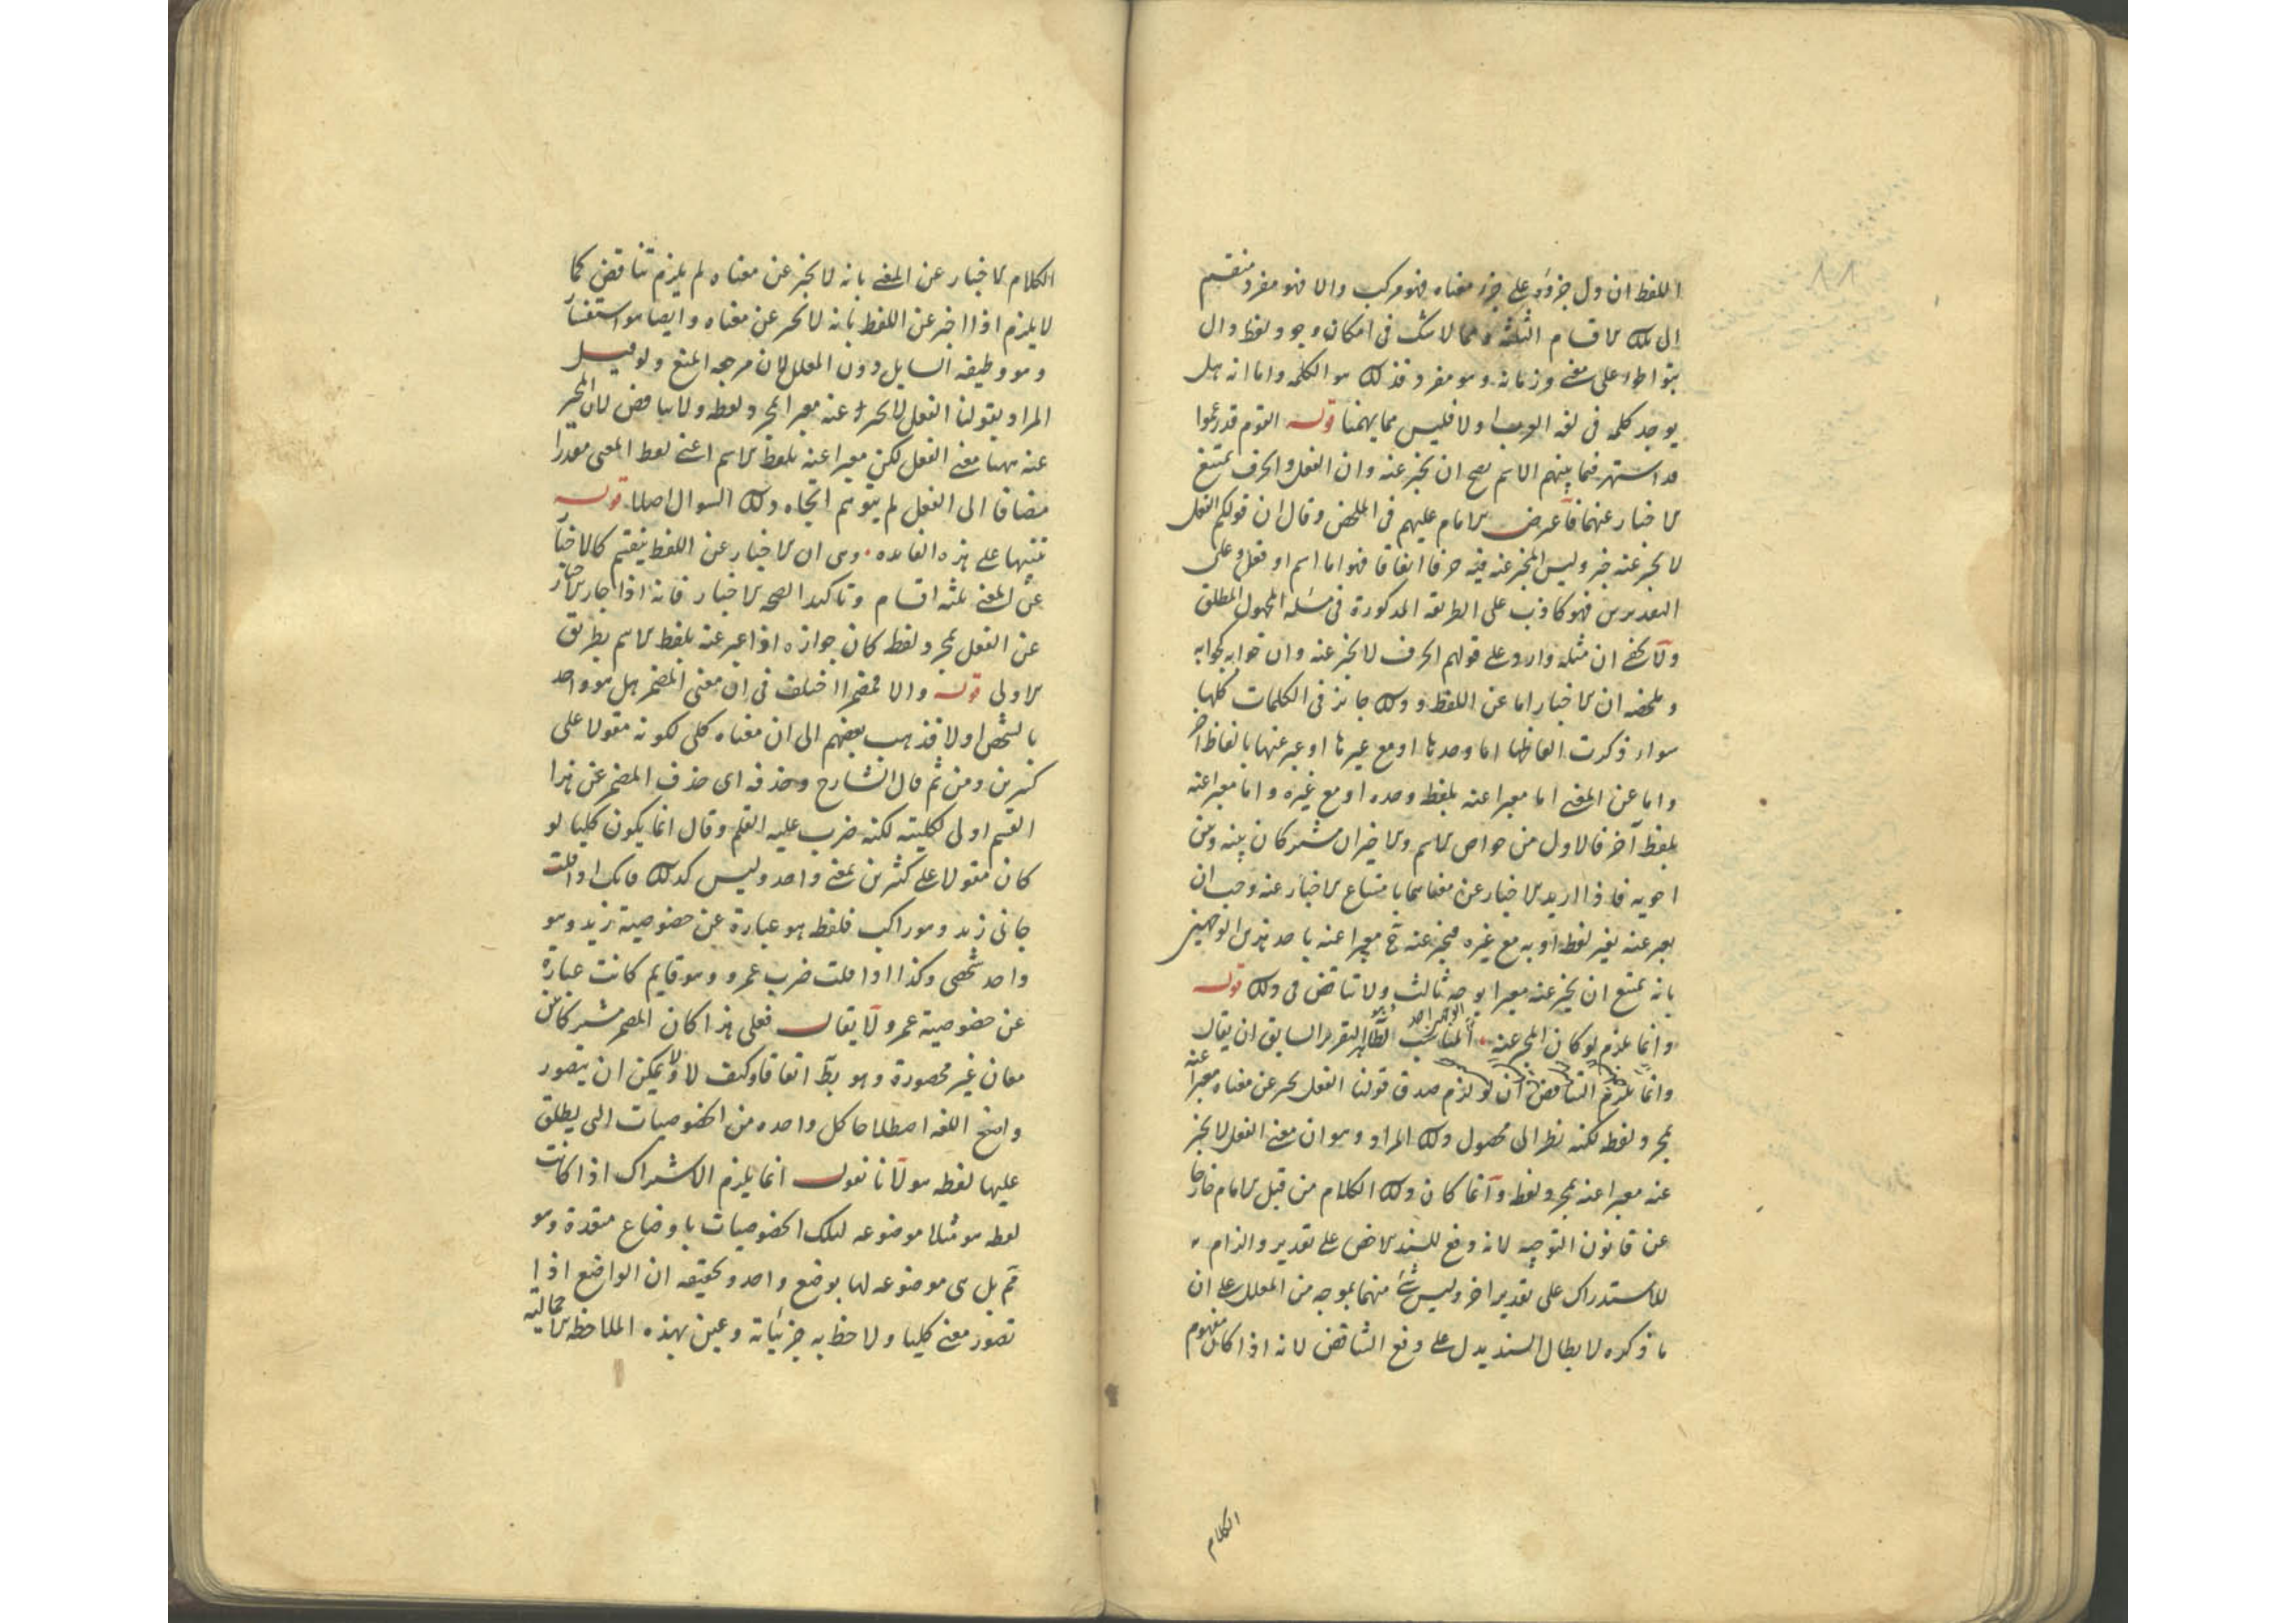 اللفظ ان دل جزؤه على جزء معناه فهو مركب والا فهو مفرد منقسم
الى تلك الاقسام الثلثة ومما لا شك فى امكان وجود لفظ دال
بتواطؤ على معنى وزمانه وهو مفرد فذلك هو الكلمة واما انه هل
يوجد كلمة فى لغة العرب او لا فليس مما يهمنا قوله القوم قد زعموا
قد اشتهر فيما بينهم الاسم يصح ان يخبر عنه وان الفعل والحرف يمتنع
الاخبار عنهما فاعترض الامام عليهم فى الملخص وقال ان قولكم الفعل
لا يخبر عنه خبر وليس المخبر عنه فيه حرفا اتفاقا فهو اما اسم او فعل وعلى
التقديرين فهو كاذب على الطريقة المذكورة فى مسئلة المجهول المطلق
ولا يخفى ان مثله وارد على قولهم الحرف لا يخبر عنه وان جوابه كجوابه
وملخصه ان الاخبار اما عن اللفظ وذلك جائز فى الكلمات كلها
سواء ذكرت الفاظها اما وحدها او مع غيرها او عبر عنها بالفاظ اخر
واما عن المعنى اما معبرا عنه بلفظه وحده او مع غيره واما معبرا عنه
بلفظ آخر فالاول من خواص الاسم والاخيران مشتركان بينه وبين
اخويه فاذا اريد الاخبار عن معناهما بامتناع الاخبار عنه وجب ان
يعبر عنه بغير لفظه او به مع غيره فيخبر عنه ح معبرا عنه باحد هذين الوجهين
بانه يمتنع ان يخبر عنه معبرا بوجه ثالث ولا تناقض فى ذلك قوله
وانما يلزم لو كان المخبر عنه المناسب لظاهر التقرير السابق ان يقال
وانما يلزم التناقض ان لو لزم صدق قولنا الفعل يخبر عن معناه معبرا عنه
بمجرد لفظه لكنه نظر الى محصول ذلك المراد وهو ان معنى الفعل لا يخبر
عنه معبرا عنه بمجرد لفظه وانما كان ذلك الكلام من قبل الامام خارجا
عن قانون التوجيه لانه دفع للسند الاخص على تقدير والزام
للاستدراك على تقدير اخر وليس شئ منهما بموجه من المعلل على ان
ما ذكره لابطال السند يدل على دفع التناقض لانه اذا كان مفهوم
الكلام
الكلام الاخبار عن المعنى بانه لا يخبر عن معناه لم يلزم تناقض كما
لا يلزم اذا اخبر عن اللفظ بانه لا يخبر عن معناه وايضا هو استفسار
وهو وظيفة السايل دون المعلل لان مرجعه المنع ولو قيل
المراد بقولنا الفعل لا يخبر عنه معبرا بمجرد لفظه ولا تناقض لان المخبر
عنه ههنا معنى الفعل لكن معبرا عنه بلفظ الاسم اعنى لفظ المعنى مقدرا
مضافا الى الفعل لم يتوهم اتجاه ذلك السوال اصلا قوله
تنبيها على هذه الفائدة وهى ان الاخبار عن اللفظ ينقسم كالاخبار
عن المعنى ثلثة اقسام وتاكيدا لصحة الاخبار فانه اذا جاز الاخبار
عن الفعل بمجرد لفظه كان جوازه اذا عبر عنه بلفظ الاسم بطريق
الاولى قوله والا فمضمر اختلف فى ان معنى المضمر هل هو واحد
بالشخص او لا فذهب بعضهم الى ان معناه كلى لكونه مقولا على
كثيرين ومن ثم قال الشارح وحذفه اى حذف المضمر عن هذا
القسم اولى لكليته لكنه ضرب عليه القلم وقال انما يكون كليا لو
كان مقولا على كثيرين بمعنى واحد وليس كذلك فانك اذا قلت
جانى زيد وهو راكب فلفظ هو عبارة عن خصوصية زيد وهو
واحد شخصى وكذا اذا قلت ضرب عمرو وهو قايم كانت عبارة
عن خصوصية عمرو لا يقال فعلى هذا كان المضمر مشتركا بين
معان غير محصورة وهو بط اتفاقا وكيف لا ولا يمكن ان يتصور
واضع اللغة اصطلاحا كل واحده من الخصوصيات التى يطلق
عليها لفظه هو لانا نقول انما يلزم الاشتراك اذا كانت
لفظه هو مثلا موضوعه لتلك الخصوصيات باوضاع متعددة وهو
مم بل هى موضوعه لها بوضع واحد وتحقيقه ان الواضع اذا
تصور معنى كليا ولاحظ به جزئياته وعين بهذه الملاحظه الاجمالية